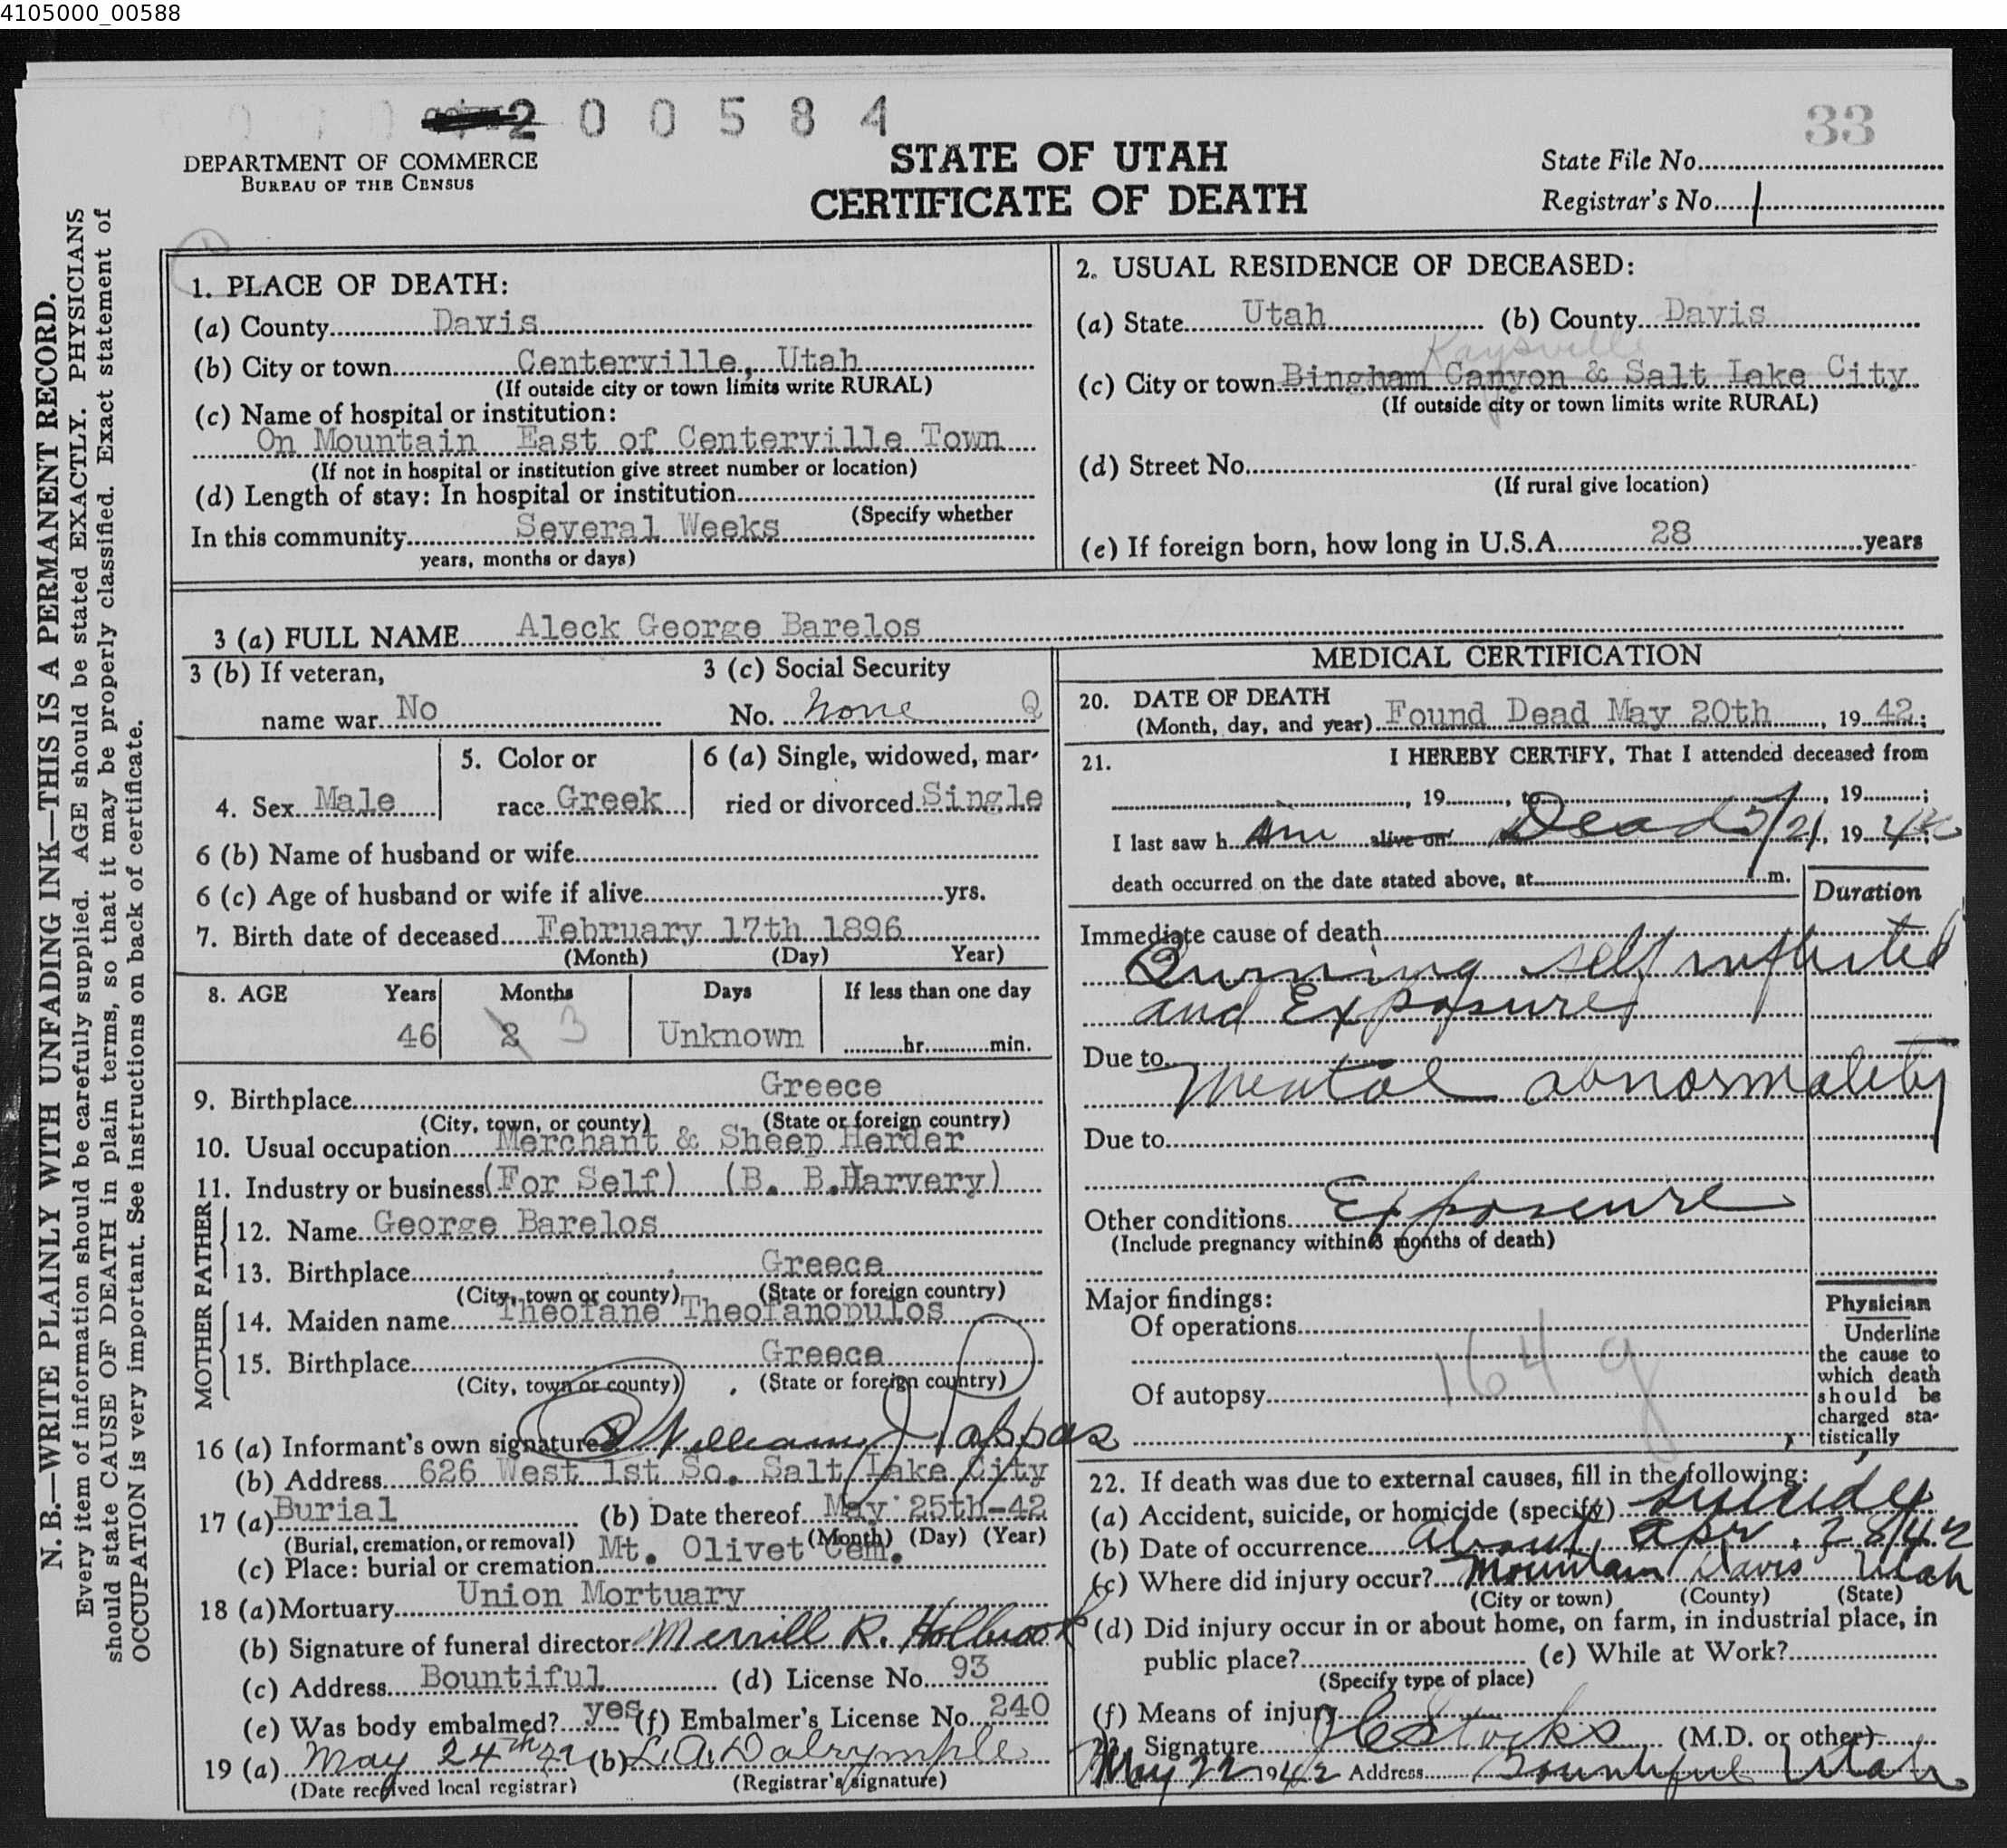 4105000_00588
2 0 0 5 8 4
33
DEPARTMENT OF COMMERCE
BUREAU OF THE CENSUS
STATE OF UTAH
CERTIFICATE OF DEATH
State File No.
Registrar's No. 1
N. B.—WRITE PLAINLY WITH UNFADING INK—THIS IS A PERMANENT RECORD.
Every item of information should be carefully supplied. AGE should be stated EXACTLY. PHYSICIANS
should state CAUSE OF DEATH in plain terms, so that it may be properly classified. Exact statement of
OCCUPATION is very important. See instructions on back of certificate.
1. PLACE OF DEATH:
(a) County Davis
(b) City or town Centerville, Utah
(If outside city or town limits write RURAL)
(c) Name of hospital or institution:
On Mountain East of Centerville Town
(If not in hospital or institution give street number or location)
(d) Length of stay: In hospital or institution
(Specify whether
In this community Several Weeks
years, months or days)
2. USUAL RESIDENCE OF DECEASED:
(a) State Utah (b) County Davis
Kaysville
(c) City or town Bingham Canyon & Salt Lake City
(If outside city or town limits write RURAL)
(d) Street No.
(If rural give location)
(e) If foreign born, how long in U.S.A. 28 years
3 (a) FULL NAME Aleck George Barelos
3 (b) If veteran,
name war No
3 (c) Social Security
No. None Q
4. Sex Male
5. Color or
race Greek
6 (a) Single, widowed, mar-
ried or divorced Single
6 (b) Name of husband or wife
6 (c) Age of husband or wife if alive yrs.
7. Birth date of deceased February 17th 1896
(Month) (Day) Year)
8. AGE Years Months Days If less than one day
46 2 3 Unknown hr. min.
9. Birthplace Greece
(City, town, or county) (State or foreign country)
10. Usual occupation Merchant & Sheep Herder
11. Industry or business (For Self) (B. B.Harvery)
FATHER
12. Name George Barelos
13. Birthplace Greece
(City, town or county) (State or foreign country)
MOTHER
14. Maiden name Theofane Theofanopulos
15. Birthplace Greece
(City, town or county) (State or foreign country)
16 (a) Informant's own signature William J Pappas
(b) Address 626 West 1st So. Salt Lake City
17 (a) Burial (b) Date thereof May 25th-42
(Burial, cremation, or removal) (Month) (Day) (Year)
(c) Place: burial or cremation Mt. Olivet Cem.
18 (a) Mortuary Union Mortuary
(b) Signature of funeral director Merrill R. Holbrook
(c) Address Bountiful (d) License No. 93
(e) Was body embalmed? yes (f) Embalmer's License No. 240
19 (a) May 24th 42 (b) L.A. Dalrymple
(Date received local registrar) (Registrar's signature)
MEDICAL CERTIFICATION
20. DATE OF DEATH
(Month, day, and year) Found Dead May 20th, 19 42;
21. I HEREBY CERTIFY, That I attended deceased from
, 19 , to , 19 ;
I last saw h im alive on Dead 5/21, 19 42;
death occurred on the date stated above, at m.
Duration
Immediate cause of death
Burning self inflicted
and Exposure
Due to
Mental abnormality
Due to
Other conditions Exposure
(Include pregnancy within 3 months of death)
Major findings:
Of operations
164 g
Of autopsy
Physician
Underline
the cause to
which death
should be
charged sta-
tistically
22. If death was due to external causes, fill in the following:
(a) Accident, suicide, or homicide (specify) Suicide
(b) Date of occurrence About Apr. 28/42
(c) Where did injury occur? Mountain Davis Utah
(City or town) (County) (State)
(d) Did injury occur in or about home, on farm, in industrial place, in
public place? (e) While at Work?
(Specify type of place)
(f) Means of injury
23. Signature Stocks (M.D. or other)
May 22 1942 Address Bountiful Utah